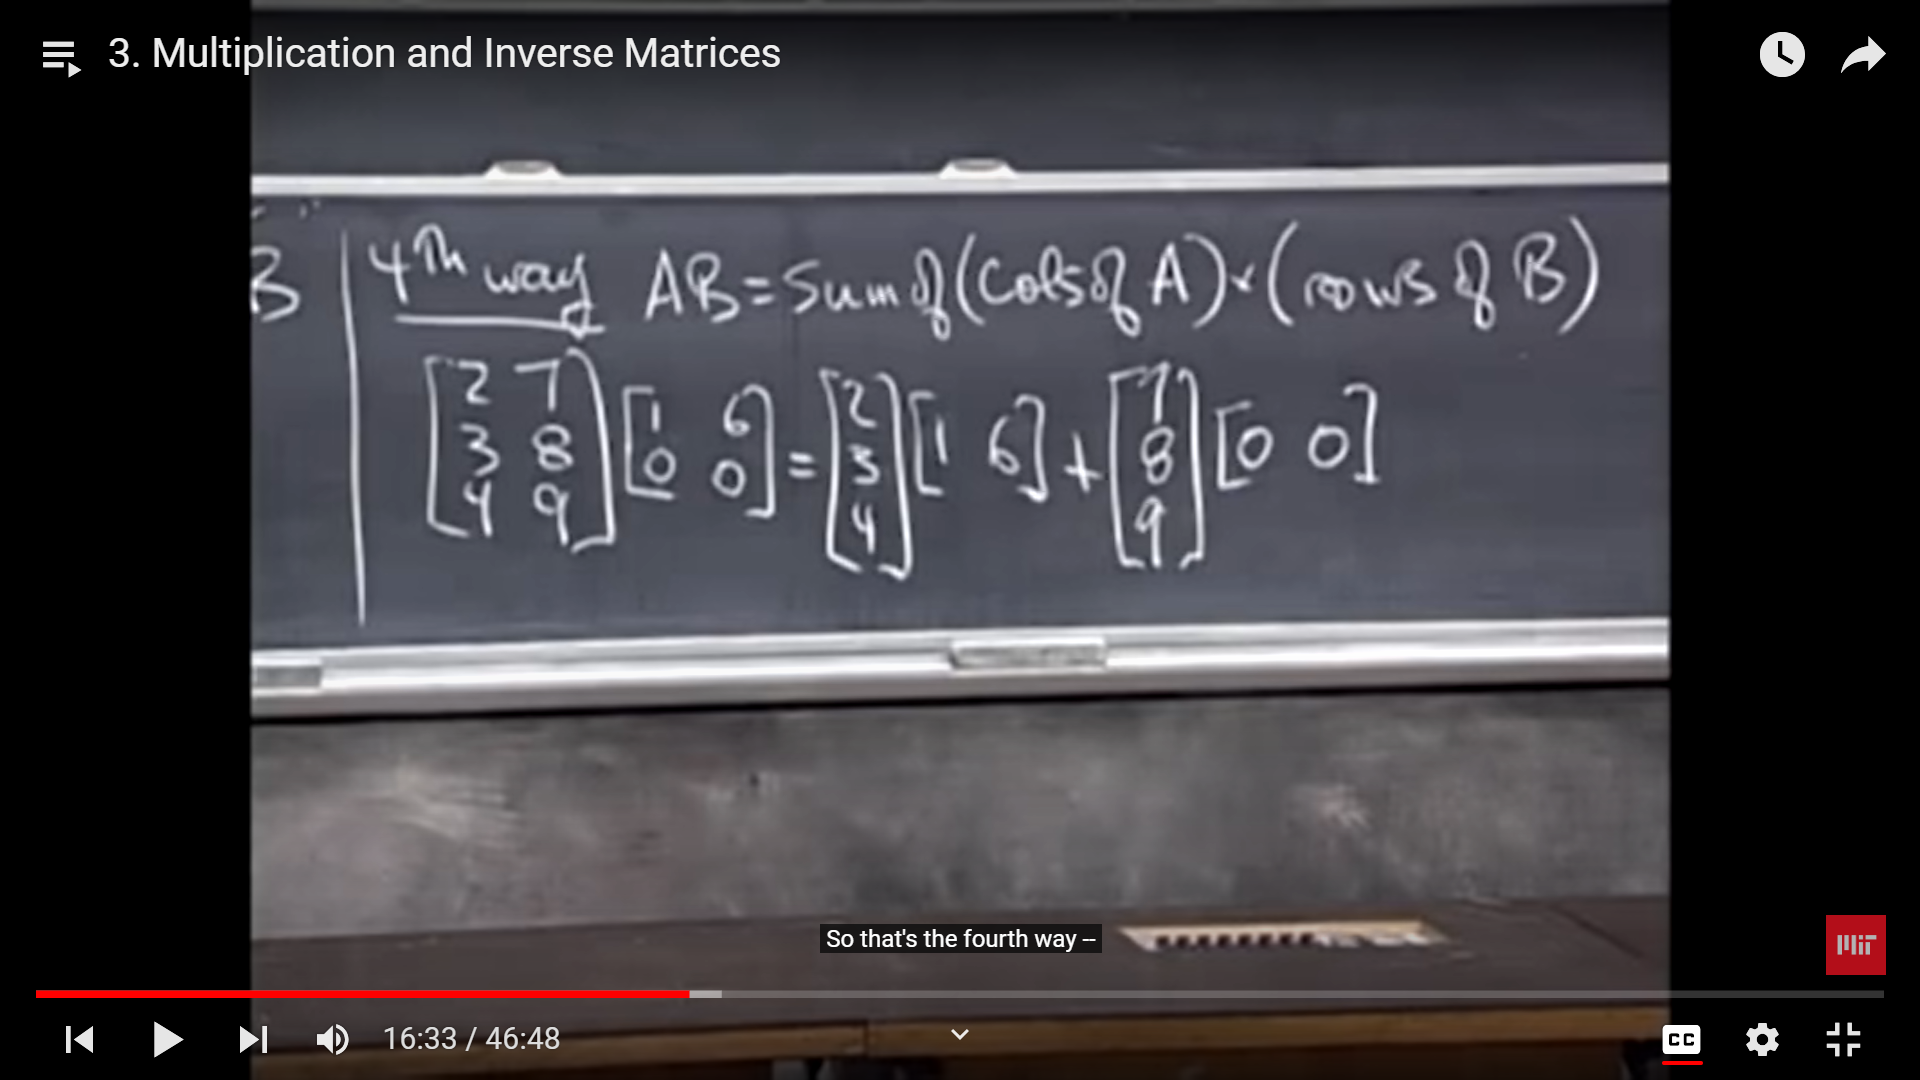 3. Multiplication and Inverse Matrices
B
4th way AB = Sum of (Cols of A) × (rows of B)
[2 7] [1 6] = [2] [1 6] + [7] [0 0]
[3 8] [0 0] [3] [8]
[4 9] [4] [9]
So that's the fourth way --
MIT
16:33 / 46:48
CC